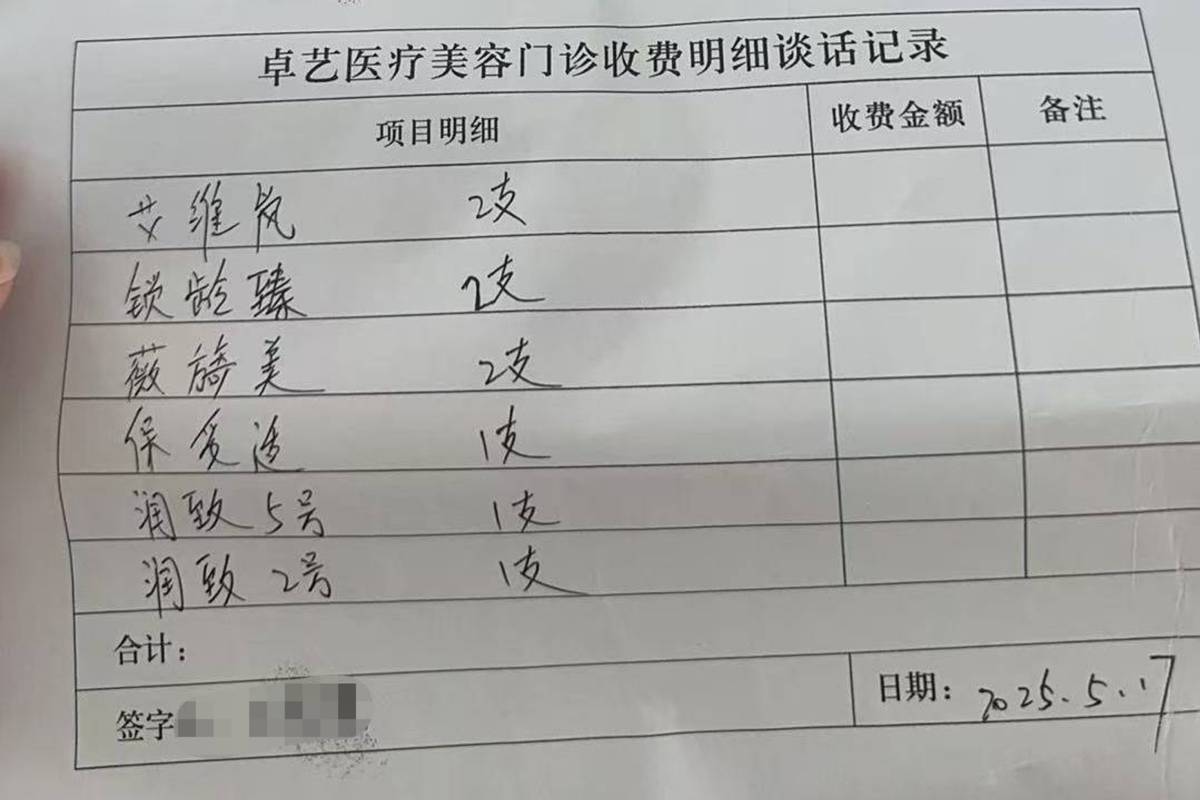 卓艺医疗美容门诊收费明细谈话记录
项目明细 收费金额 备注
艾维岚 2支
锁龄臻 2支
薇旖美 2支
保妥适 1支
润致5号 1支
润致2号 1支
合计：
签字 日期：2025.5.17